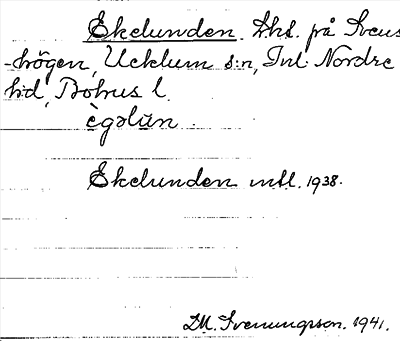 Ekelunden. Lht. på Svens
-högen, Ucklum s:n, Inl. Nordre
hd, Bohus l.
ègəlūn.
Ekelunden mtl. 1938.
D.M. Svenungsson. 1941.